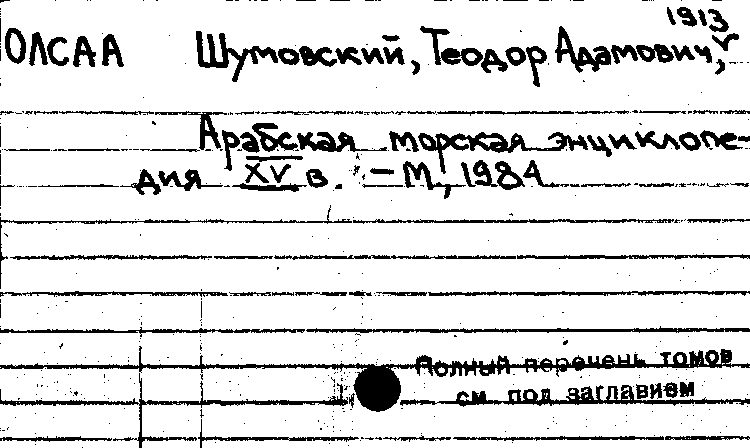 1913
ОЛСАА Шумовский, Теодор Адамович,
Арабская морская энциклопе-
дия XV в. – М., 1984
Полный перечень томов
см под заглавием